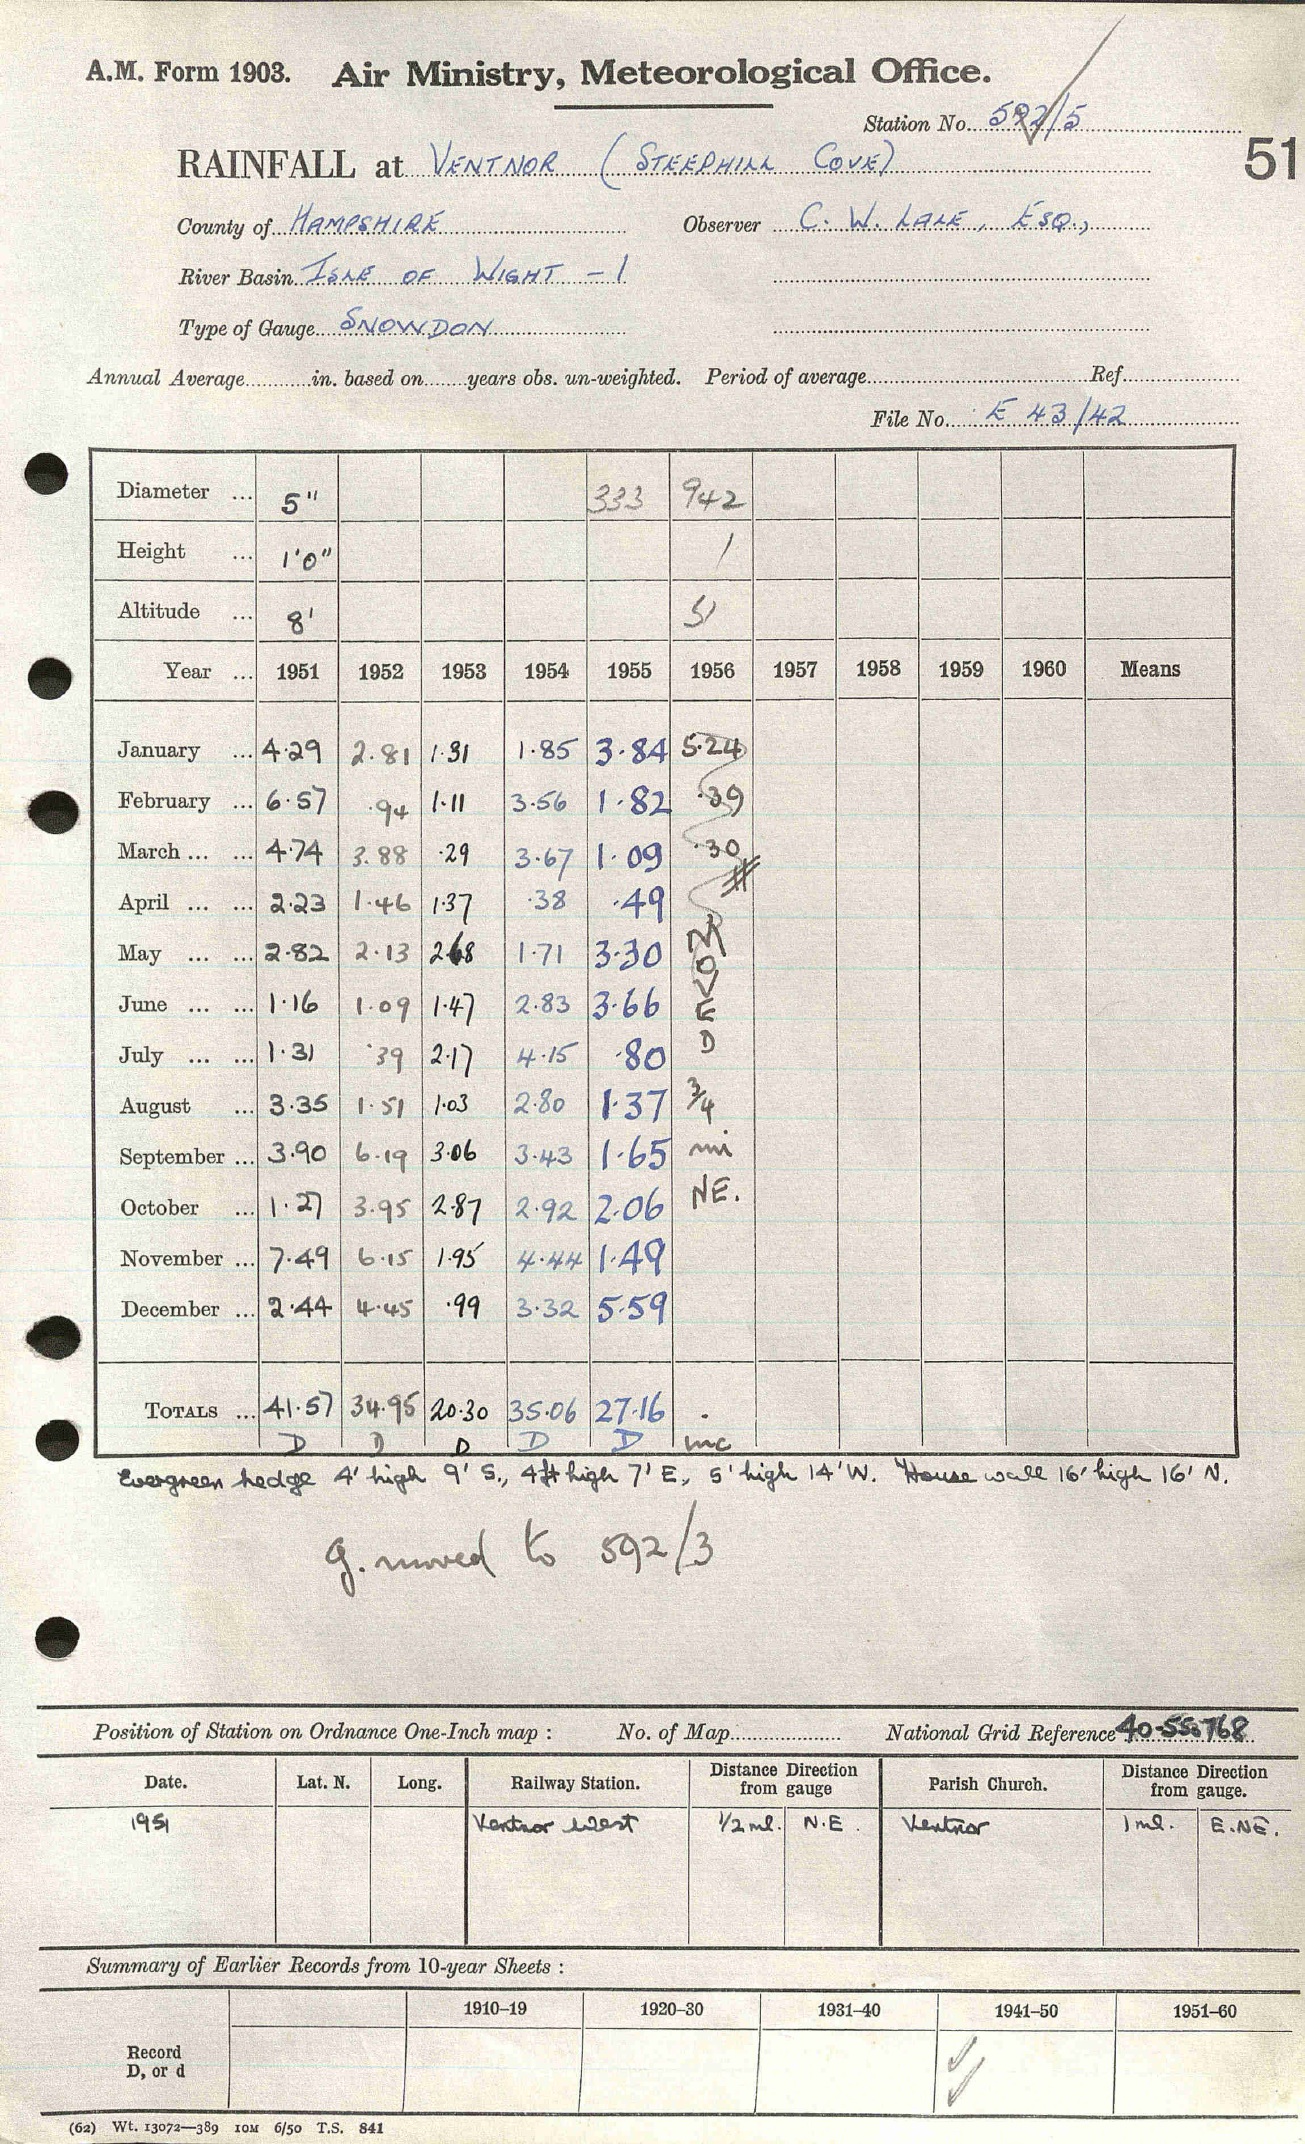 A.M. Form 1903. Air Ministry, Meteorological Office.
Station No. 592/5
51
RAINFALL at VENTNOR (STEEPHILL COVE)
County of HAMPSHIRE Observer C. W. LALE, ESQ.,
River Basin ISLE OF WIGHT - 1
Type of Gauge SNOWDON
Annual Average in. based on years obs. un-weighted. Period of average Ref.
File No. E 43/42
Diameter ... 5" 333 942
Height ... 1'0" 1
Altitude ... 8' 51
Year ... 1951 1952 1953 1954 1955 1956 1957 1958 1959 1960 Means
January ... 4.29 2.81 1.31 1.85 3.84 5.24
February ... 6.57 .94 1.11 3.56 1.82 .39
March ... ... 4.74 3.88 .29 3.67 1.09 .30
April ... ... 2.23 1.46 1.37 .38 .49
May ... ... 2.82 2.13 2.68 1.71 3.30
June ... ... 1.16 1.09 1.47 2.83 3.66
July ... ... 1.31 .39 2.17 4.15 .80
August ... 3.35 1.51 1.03 2.80 1.37
September ... 3.90 6.19 3.06 3.43 1.65
October ... 1.27 3.95 2.87 2.92 2.06
November ... 7.49 6.15 1.95 4.44 1.49
December ... 2.44 4.45 .99 3.32 5.59
MOVED 3/4 mi NE.
TOTALS ... 41.57 34.95 20.30 35.06 27.16 .
D D D D D inc
Evergreen hedge 4' high 9' S., 4ft high 7' E., 5' high 14' W. House wall 16' high 16' N.
g. moved to 592/3
Position of Station on Ordnance One-Inch map : No. of Map National Grid Reference 40-550768
Date. Lat. N. Long. Railway Station. Distance Direction from gauge Parish Church. Distance Direction from gauge.
1951 Ventnor West 1/2 ml. N.E. Ventnor 1 ml. E.NE.
Summary of Earlier Records from 10-year Sheets :
1910–19 1920–30 1931–40 1941–50 1951–60
Record
D, or d
(62) Wt. 13072—389 10M 6/50 T.S. 841